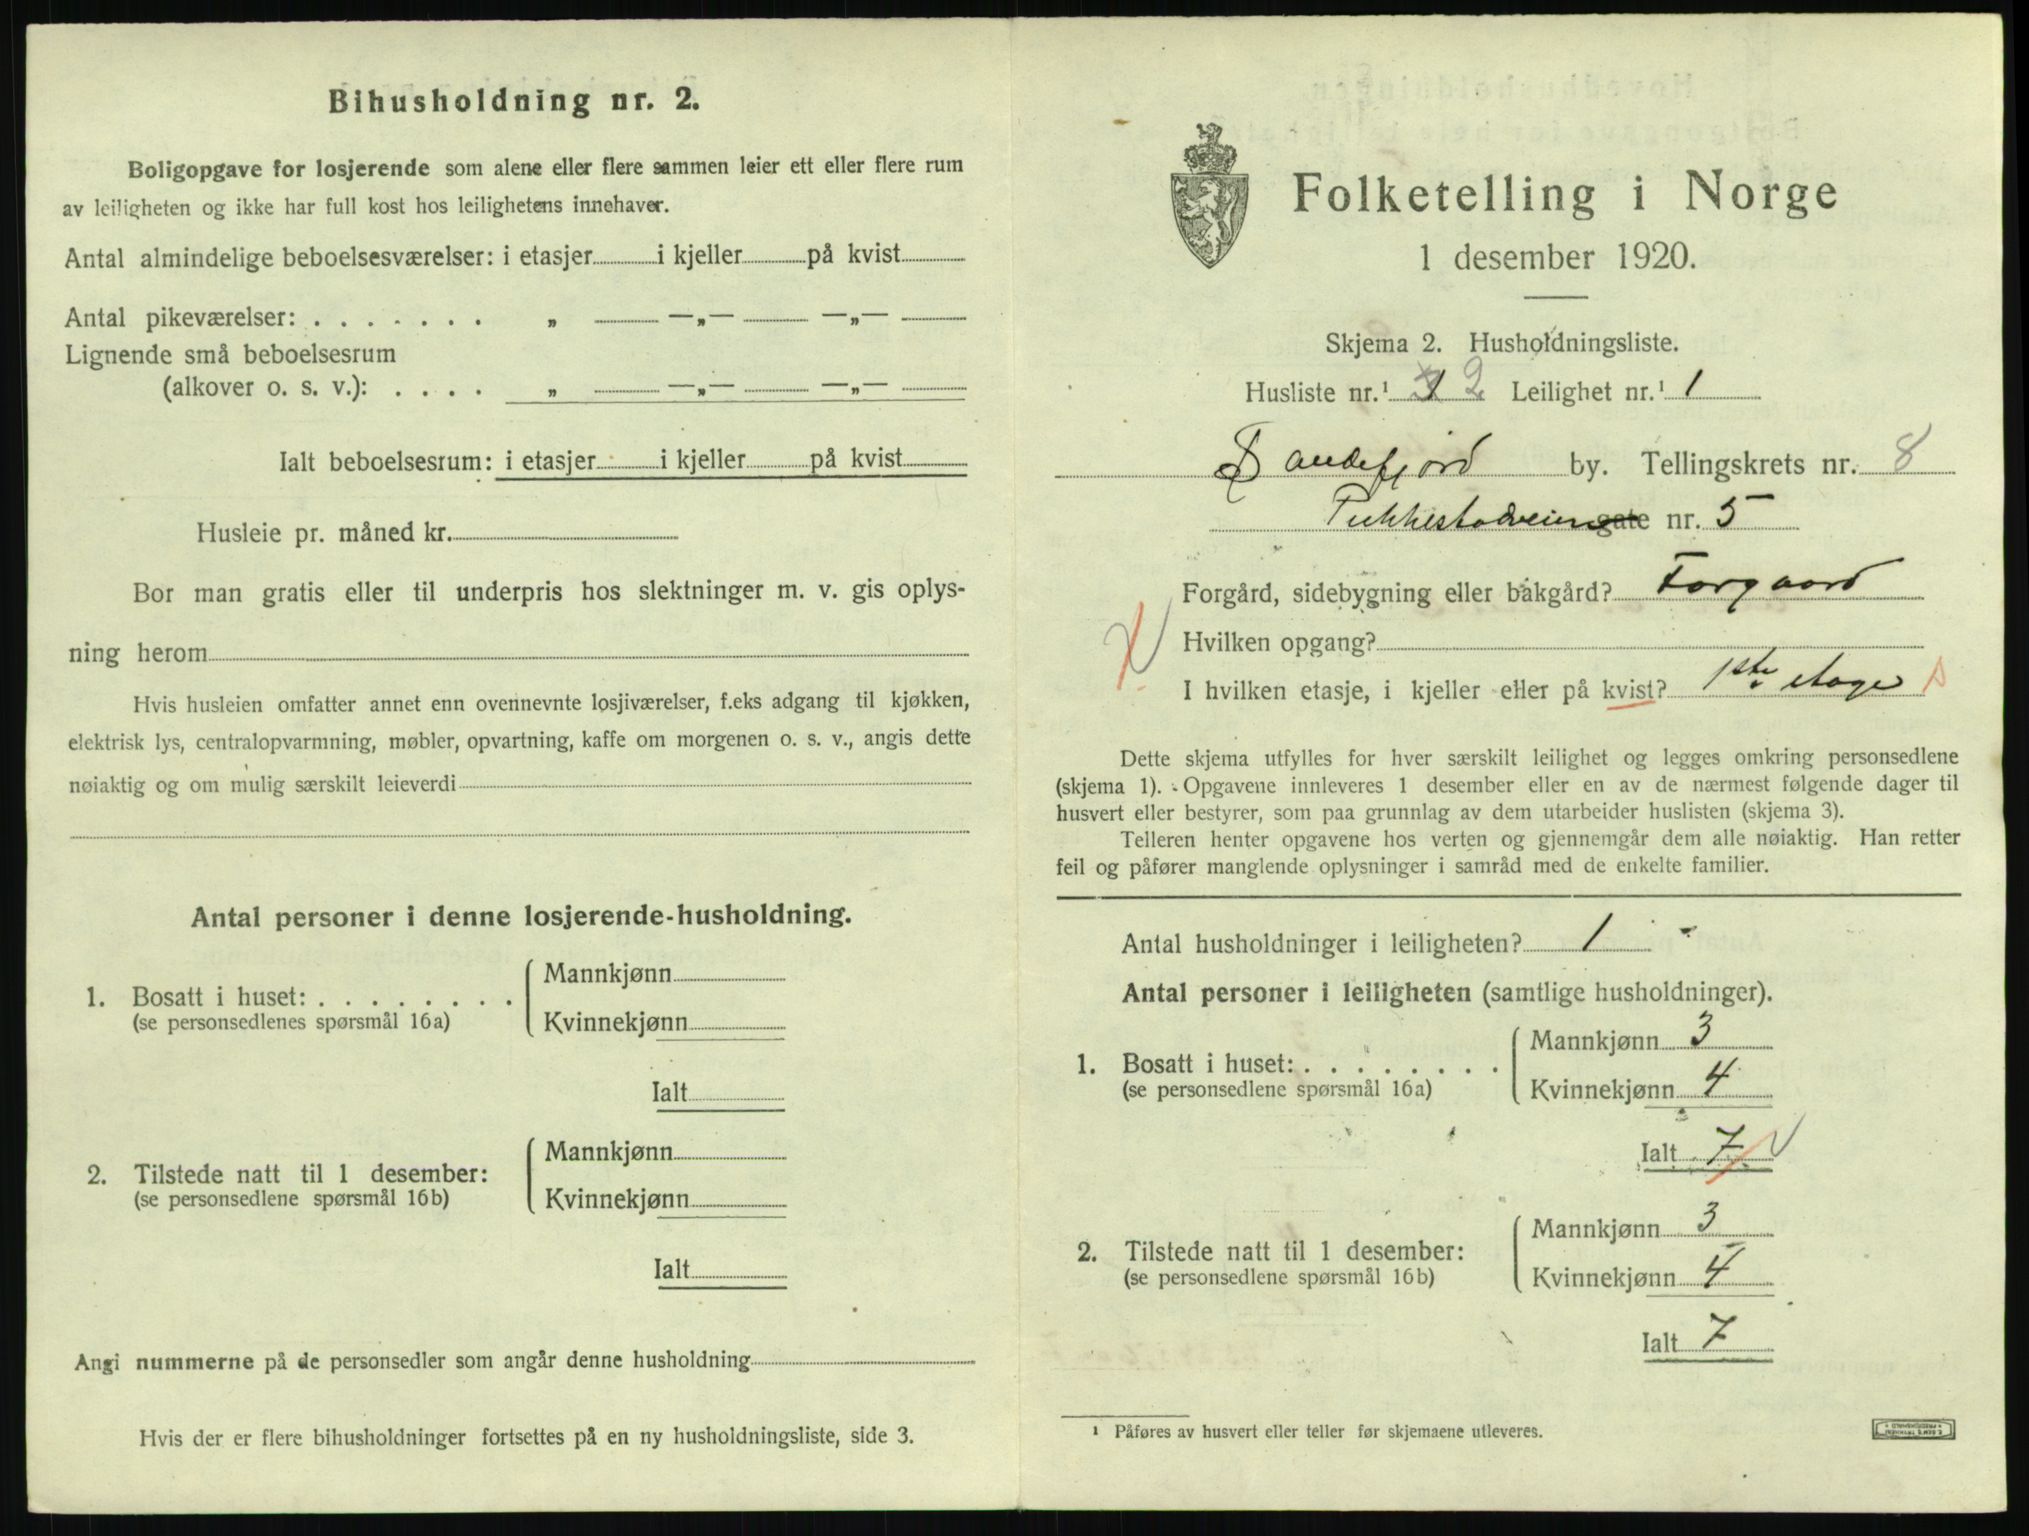 Bihusholdning nr. 2.
Boligopgave for losjerende som alene eller flere sammen leier ett eller flere rum
av leiligheten og ikke har full kost hos leilighetens innehaver.
Antal almindelige beboelsesværelser: i etasjer i kjeller på kvist
Antal pikeværelser: . . . . . . . „ —„— —„—
Lignende små beboelsesrum
(alkover o. s. v.): . . . . „ —„— —„—
Ialt beboelsesrum: i etasjer i kjeller på kvist
Husleie pr. måned kr.
Bor man gratis eller til underpris hos slektninger m. v. gis oplys-
ning herom
Hvis husleien omfatter annet enn ovennevnte losjiværelser, f.eks adgang til kjøkken,
elektrisk lys, centralopvarmning, møbler, opvartning, kaffe om morgenen o. s. v., angis dette
nøiaktig og om mulig særskilt leieverdi
Antal personer i denne losjerende-husholdning.
1. Bosatt i huset: . . . . . . . . Mannkjønn
(se personsedlenes spørsmål 16a) Kvinnekjønn
Ialt
2. Tilstede natt til 1 desember: Mannkjønn
(se personsedlene spørsmål 16b) Kvinnekjønn
Ialt
Angi nummerne på de personsedler som angår denne husholdning
Hvis der er flere bihusholdninger fortsettes på en ny husholdningsliste, side 3.
Folketelling i Norge
1 desember 1920.
Skjema 2. Husholdningsliste.
Husliste nr.¹ 2 Leilighet nr.¹ 1
Sandefjord by. Tellingskrets nr. 8
gate nr. 5
Forgård, sidebygning eller bakgård? Forgaard
Hvilken opgang?
I hvilken etasje, i kjeller eller på kvist? 1ste etage
Dette skjema utfylles for hver særskilt leilighet og legges omkring personsedlene
(skjema 1). Opgavene innleveres 1 desember eller en av de nærmest følgende dager til
husvert eller bestyrer, som paa grunnlag av dem utarbeider huslisten (skjema 3).
Telleren henter opgavene hos verten og gjennemgår dem alle nøiaktig. Han retter
feil og påfører manglende oplysninger i samråd med de enkelte familier.
Antal husholdninger i leiligheten? 1
Antal personer i leiligheten (samtlige husholdninger).
1. Bosatt i huset: . . . . . . . . Mannkjønn 3
(se personsedlene spørsmål 16a) Kvinnekjønn 4
Ialt 7
2. Tilstede natt til 1 desember: Mannkjønn 3
(se personsedlene spørsmål 16b) Kvinnekjønn 4
Ialt 7
¹ Påføres av husvert eller teller før skjemaene utleveres.